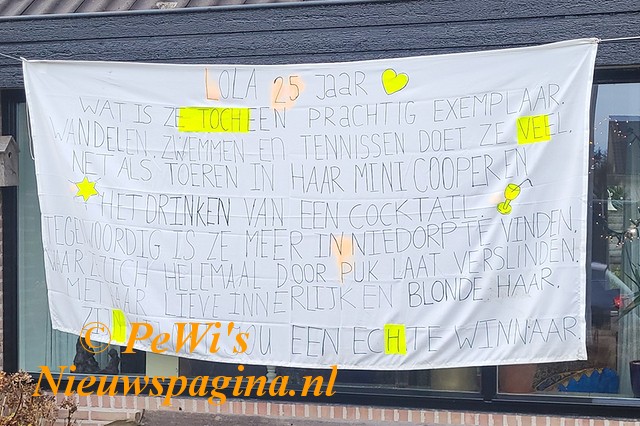 LOLA 25 Jaar
WAT IS ZE TOCH EEN PRACHTIG EXEMPLAAR.
WANDELEN, ZWEMMEN EN TENNISSEN DOET ZE VEEL.
NET ALS TOEREN IN HAAR MINI COOPER EN
HET DRINKEN VAN EEN COCKTAIL.
TEGENWOORDIG IS ZE MEER IN NIEDORP TE VINDEN,
WAAR ZE ZICH HELEMAAL DOOR PUK LAAT VERSLINDEN.
MET HAAR LIEVE INNERLIJK EN BLONDE HAAR.
JOU EEN ECHTE WINNAAR
© PeWi's
Nieuwspagina.nl